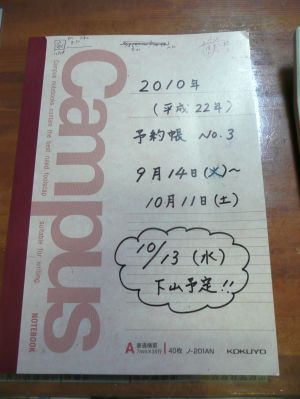 2010年
(平成22年)
予約帳 No.3
9月14日(火)~
10月11日(土)
10/13(水)
下山予定!!
Campus
Campus notebooks contain the best ruled foolscap
suitable for writing
NOTEBOOK
A 普通横罫
7mm×30行
40枚 ノ-201AN
KOKUYO